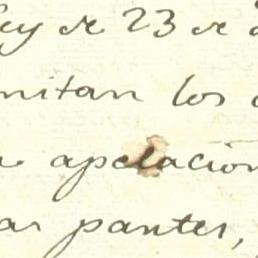 ley de 23 de
mitan los
apelacion
las pantes,